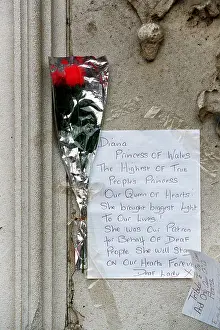 Diana
Princess of Wales
The Highest of True
Peoples Princess
Our Queen of Hearts
She brought biggest Light
To Our Lives!
She was Our Patron
for Behalf of Deaf
People She will Stay
On Our Hearts Forever
Deaf Lady X